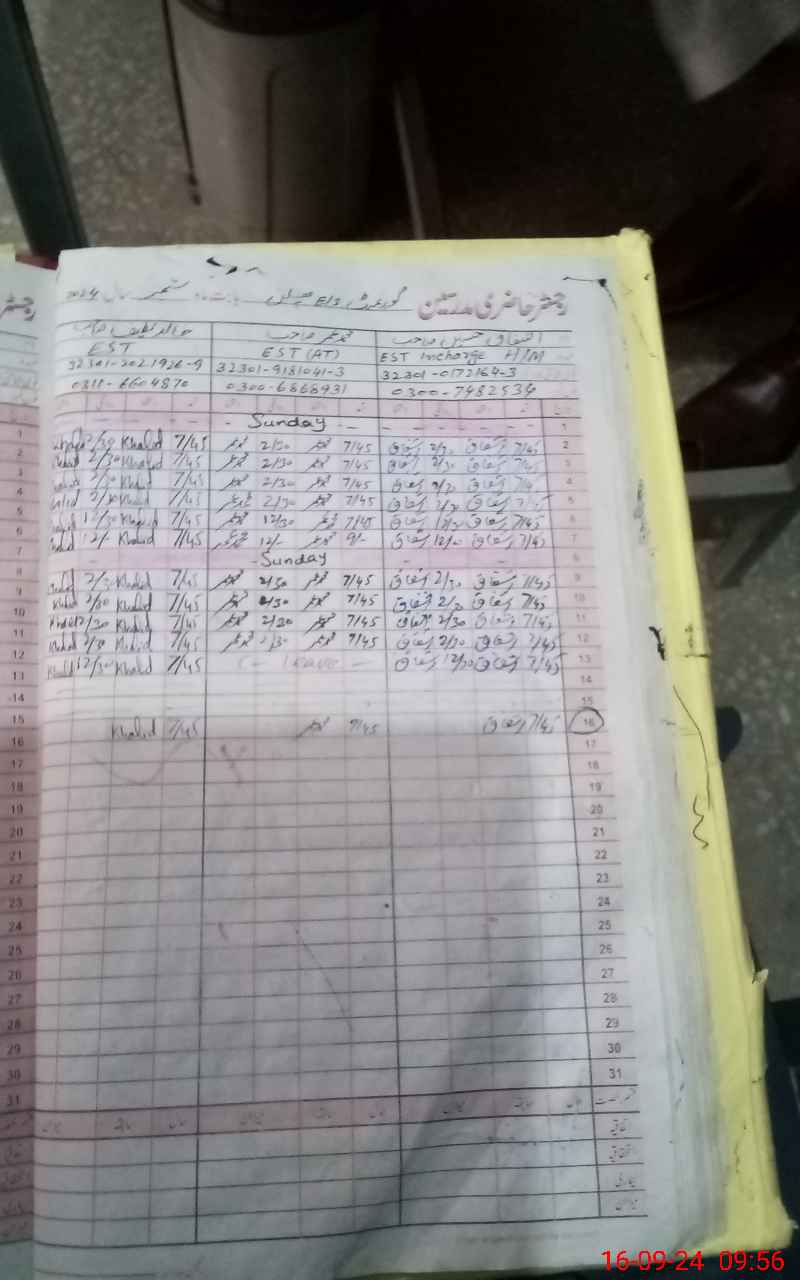 رجسٹر حاضری مدرسین گورنمنٹ E/S بابت ماہ ستمبر سال 2024
اشفاق حسین صاحب محمد عمر صاحب خالد لطیف صاحب
EST Incharge H/M EST (AT) EST
32301-0172164-3 32301-9181041-3 32301-2021926-9
0300-7482534 0300-6868931 0311-6604870
1 Sunday
2 7/45 اشفاق 2/30 اشفاق 7/45 محمد عمر 2/30 محمد عمر 7/45 Khalid 2/30 Khalid
3 7/45 اشفاق 2/30 اشفاق 7/45 محمد عمر 2/30 محمد عمر 7/45 Khalid 2/30 Khalid
4 7/45 اشفاق 2/30 اشفاق 7/45 محمد عمر 2/30 محمد عمر 7/45 Khalid 2/30 Khalid
5 7/45 اشفاق 2/30 اشفاق 7/45 محمد عمر 2/30 محمد عمر 7/45 Khalid 2/30 Khalid
6 7/45 اشفاق 12/30 اشفاق 7/45 محمد عمر 12/30 محمد عمر 7/45 Khalid 12/30 Khalid
7 7/45 اشفاق 12/- اشفاق 9/- محمد عمر 12/- محمد عمر 7/45 Khalid 12/- Khalid
8 Sunday
9 7/45 اشفاق 2/30 اشفاق 7/45 محمد عمر 2/30 محمد عمر 7/45 Khalid 2/30 Khalid
10 7/45 اشفاق 2/30 اشفاق 7/45 محمد عمر 2/30 محمد عمر 7/45 Khalid 2/30 Khalid
11 7/45 اشفاق 2/30 اشفاق 7/45 محمد عمر 2/30 محمد عمر 7/45 Khalid 2/30 Khalid
12 7/45 اشفاق 2/30 اشفاق 7/45 محمد عمر 2/30 محمد عمر 7/45 Khalid 2/30 Khalid
13 7/45 اشفاق 12/30 اشفاق Leave 7/45 Khalid 12/30 Khalid
14
15
16 7/45 اشفاق 7/45 محمد عمر 7/45 Khalid
17
18
19
20
21
22
23
24
25
26
27
28
29
30
31
اتفاقیہ
بیماری
میزان
رجسٹر
1
2
3
4
5
6
7
8
9
10
11
12
13
14
15
16
17
18
19
20
21
22
23
24
25
26
27
28
29
30
31
16-09-24 09:56